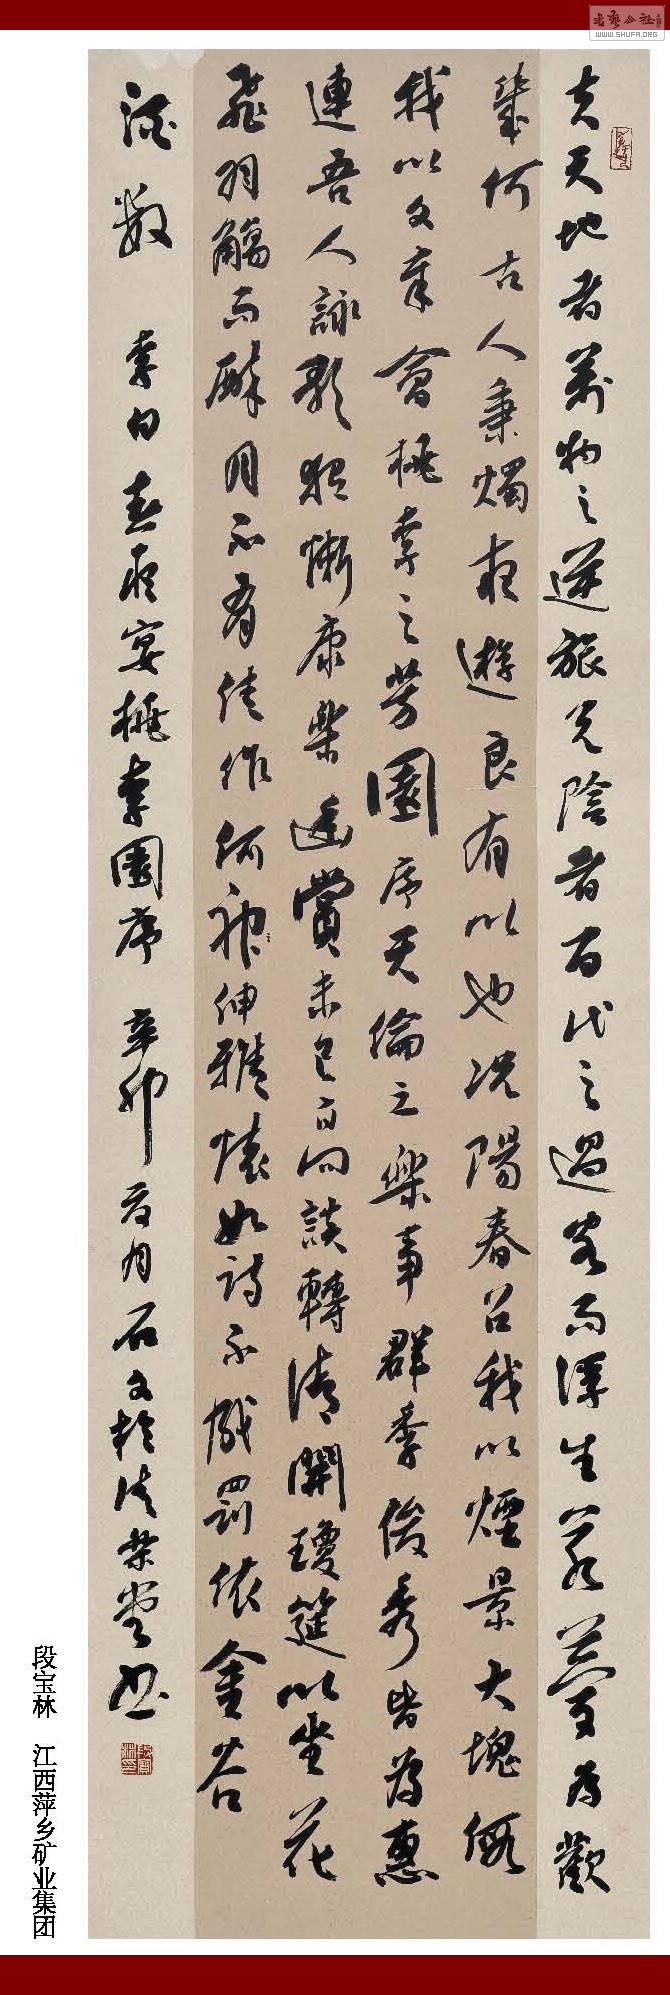 夫天地者萬物之逆旅光陰者百代之過客而浮生若夢為歡
幾何古人秉燭夜遊良有以也況陽春召我以煙景大塊假
我以文章會桃李之芳園序天倫之樂事群季俊秀皆為惠
連吾人詠歌獨慚康樂幽賞未已高談轉清開瓊筵以坐花
飛羽觴而醉月不有佳作何伸雅懷如詩不成罰依金谷
酒數 李白春夜宴桃李園序 辛卯夏月石文於堂書
段宝林 江西萍乡矿业集团
WWW.SHUFA.ORG